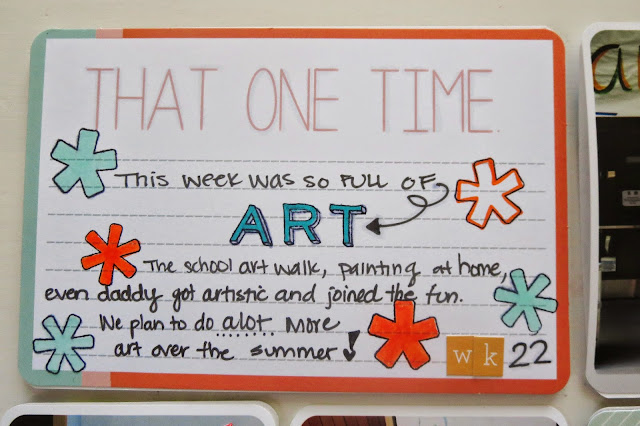 THAT ONE TIME.
This week was so FULL OF
ART
The school art walk, painting at home,
even daddy got artistic and joined the fun.
We plan to do alot more
art over the summer!
wk 22